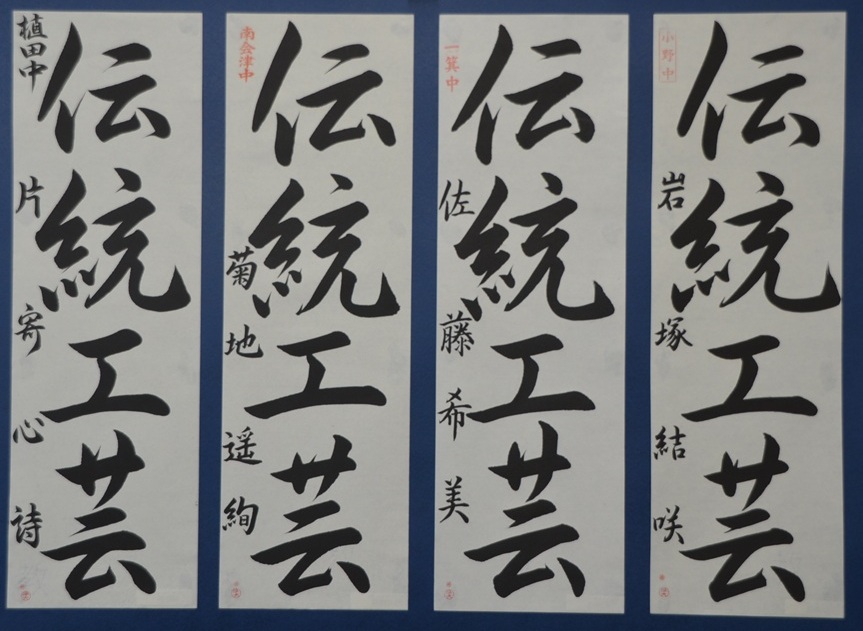 伝統工芸
小野中
岩塚結咲
伝統工芸
一箕中
佐藤希美
伝統工芸
南会津中
菊地遥絢
伝統工芸
植田中
片寄心詩